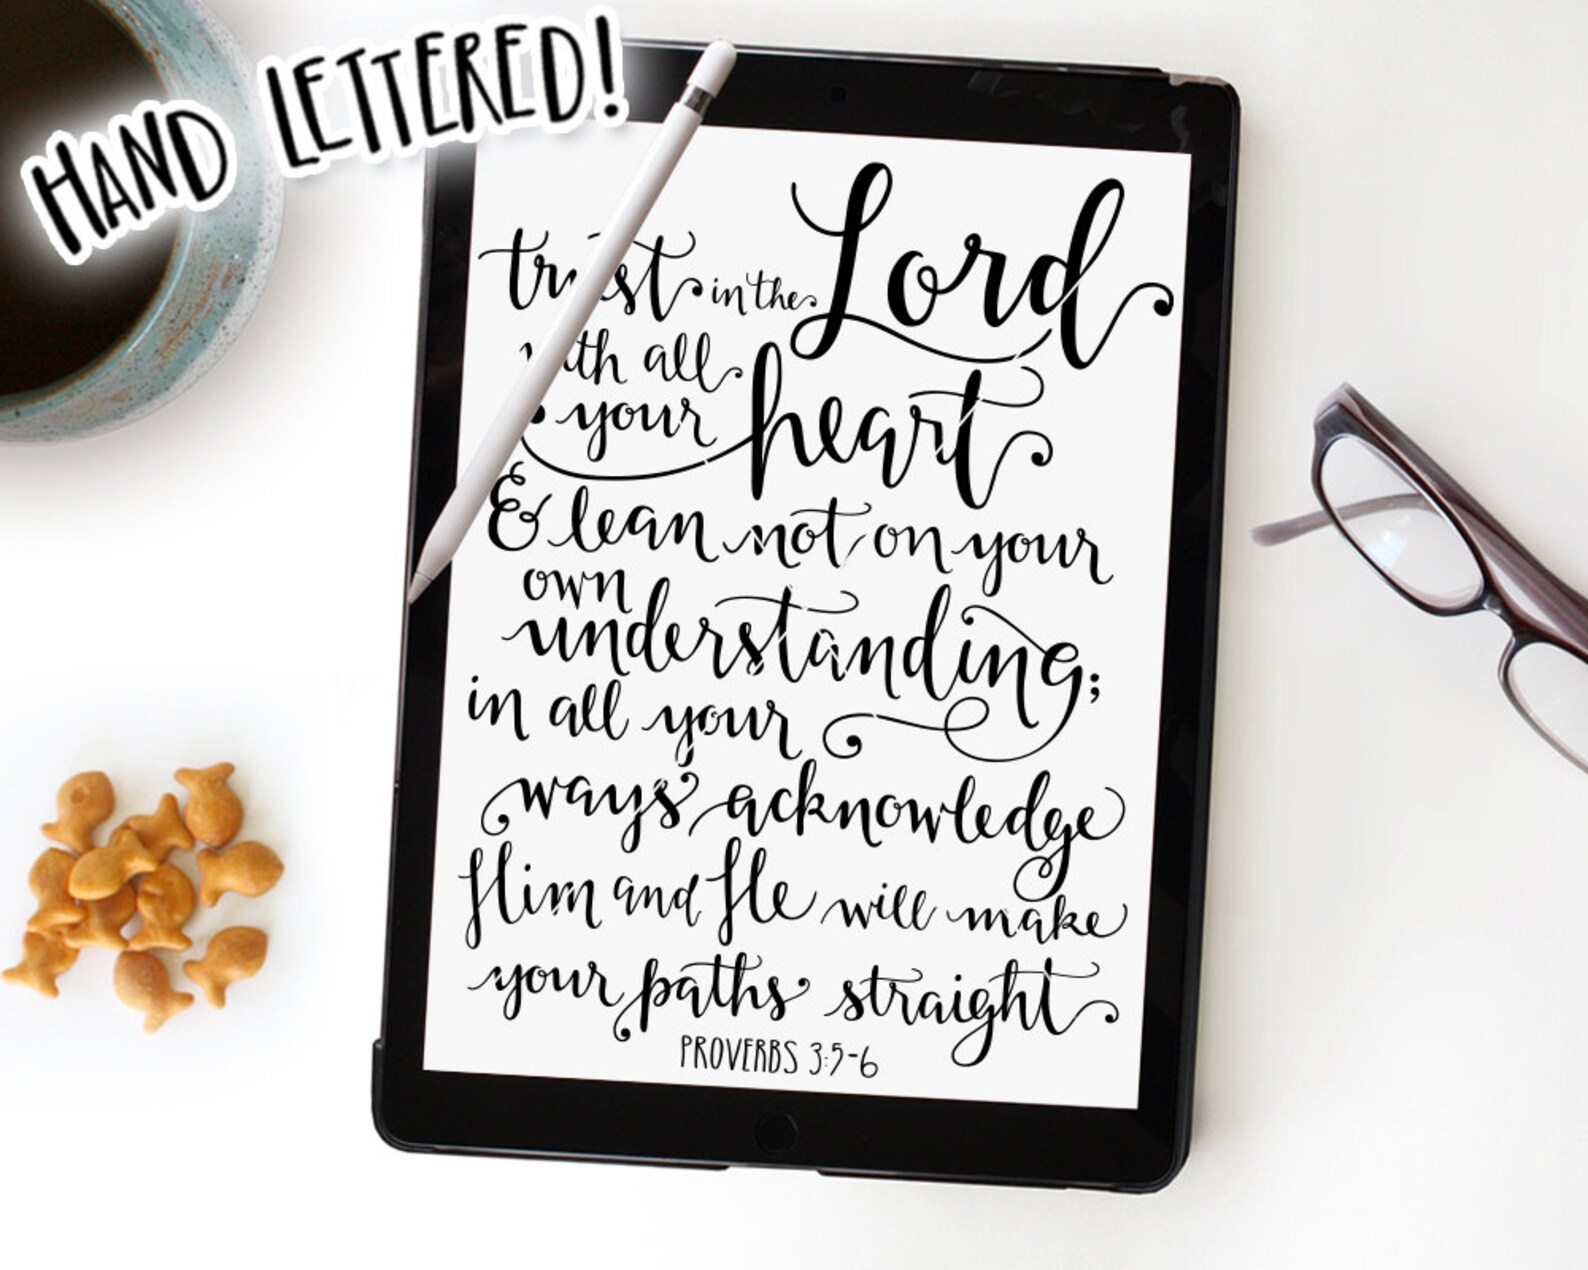 HAND LETTERED!
trust in the Lord
with all
your heart
& lean not on your
own
understanding;
in all your
ways acknowledge
Him and He will make
your paths straight
PROVERBS 3:5-6